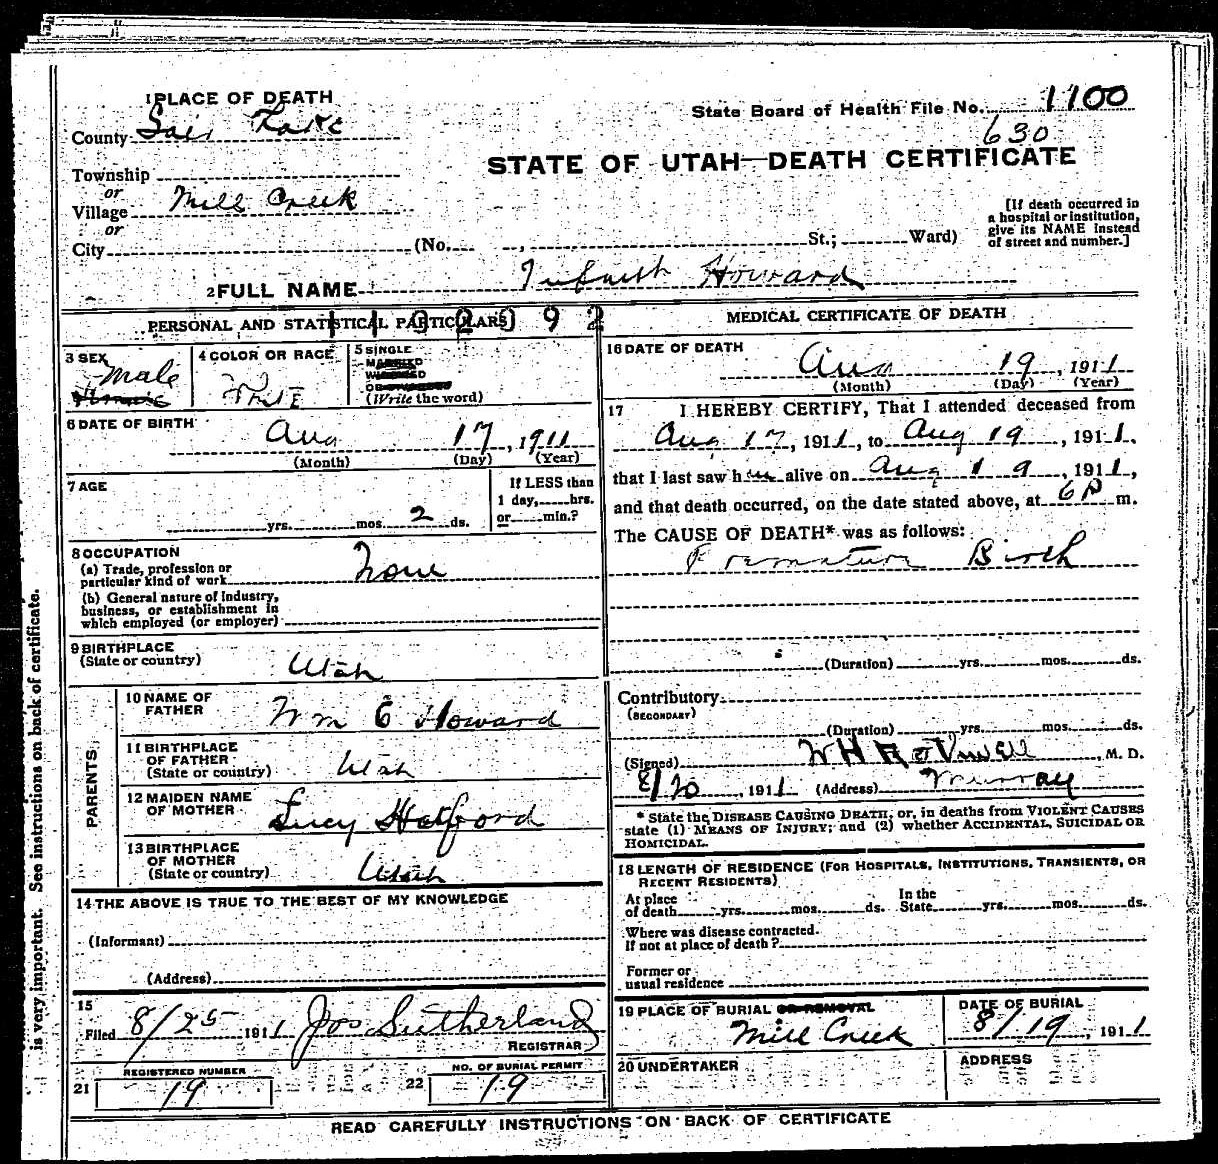 1 PLACE OF DEATH
County Salt Lake
State Board of Health File No. 1100
630
STATE OF UTAH—DEATH CERTIFICATE
Township
or
Village Mill Creek
or
City (No. , St.; Ward)
[If death occurred in
a hospital or institution,
give its NAME instead
of street and number.]
2 FULL NAME Infant Howard
PERSONAL AND STATISTICAL PARTICULARS
3 SEX
Male
4 COLOR OR RACE
White
5 SINGLE
MARRIED
WIDOWED
OR DIVORCED
(Write the word)
6 DATE OF BIRTH
Aug 17, 1911
(Month) (Day) (Year)
7 AGE
yrs. mos. 2 ds.
If LESS than
1 day, hrs.
or min.?
8 OCCUPATION
(a) Trade, profession or
particular kind of work None
(b) General nature of Industry,
business, or establishment in
which employed (or employer)
9 BIRTHPLACE
(State or country)
Utah
PARENTS
10 NAME OF
FATHER
Wm C Howard
11 BIRTHPLACE
OF FATHER
(State or country) Utah
12 MAIDEN NAME
OF MOTHER
Lucy
13 BIRTHPLACE
OF MOTHER
(State or country) Utah
14 THE ABOVE IS TRUE TO THE BEST OF MY KNOWLEDGE
(Informant)
(Address)
15
Filed 8/25 1911 Jos Sutherland
REGISTRAR
REGISTERED NUMBER
21 19
NO. OF BURIAL PERMIT
22 19
MEDICAL CERTIFICATE OF DEATH
16 DATE OF DEATH
Aug 19, 1911
(Month) (Day) (Year)
17 I HEREBY CERTIFY, That I attended deceased from
Aug 17, 1911, to Aug 19, 1911,
that I last saw him alive on Aug 19, 1911,
and that death occurred, on the date stated above, at 6 P m.
The CAUSE OF DEATH* was as follows:
Premature Birth
(Duration) yrs. mos. ds.
Contributory
(SECONDARY)
(Duration) yrs. mos. ds.
(Signed) W H Rothwell, M. D.
8/20, 1911 (Address) Murray
* State the DISEASE CAUSING DEATH; or, in deaths from VIOLENT CAUSES
state (1) MEANS OF INJURY; and (2) whether ACCIDENTAL, SUICIDAL OR
HOMICIDAL.
18 LENGTH OF RESIDENCE (FOR HOSPITALS, INSTITUTIONS, TRANSIENTS, OR
RECENT RESIDENTS)
At place
of death yrs. mos. ds.
In the
State yrs. mos. ds.
Where was disease contracted.
If not at place of death?
Former or
usual residence
19 PLACE OF BURIAL OR REMOVAL
Mill Creek
DATE OF BURIAL
8/19, 1911
20 UNDERTAKER
ADDRESS
READ CAREFULLY INSTRUCTIONS ON BACK OF CERTIFICATE
is very important. See instructions on back of certificate.